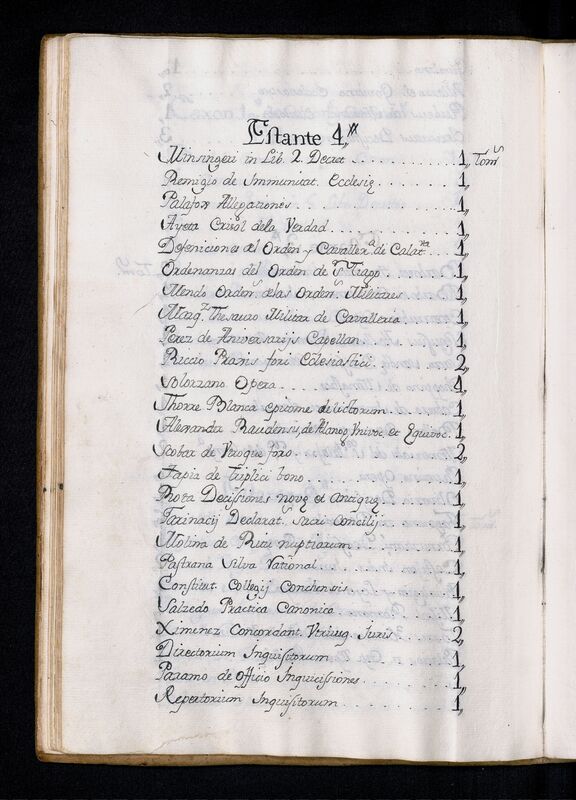 Estante 4.ª
Minsingeri in Lib. 2. Decret . . . 1,, Tom.s
Remigio de Immunitat. Ecclesię . . . 1,,
Palafox Allegationes . . . 1,,
Ayeta Crisol dela Verdad . . . 1,,
Defeniciones del Orden y Cavaller.ª de Calat.va 1,,
Ordenanzas del Orden de S.Tiago . . . 1,,
Mendo Orden.s de las Orden.s Militares . . . 1,,
Marq.z Thesauro Militar de Cavalleria . . . 1,,
Perez de Aniversarijs Capellan . . . 1,,
Riccio Praxis fori Eclesiastici . . . 2,,
Solorzano Opera . . . 4,,
Thorre Blanca epitome delictorum . . . 1,,
Alexandra Raudensis, de Analog. Univoc. et Equivoc. 1,,
Scobar de Utroque foro . . . 2,,
Tapia de Triplici bono . . . 1,,
Rota Decissiones novę et antiquę . . . 1,,
Farinacij Declarat.s sacri Concilij . . . 1,,
Molina de Ritu nuptiarum . . . 1,,
Pastrana Silva Rational . . . 1,,
Constitut. Collegij Conchensis . . . 1,,
Salzedo Practica Canonica . . . 1,,
Ximenez Concordant. Utriusq. Juris . . . 2,,
Directorium Inquisitorum . . . 1,,
Paramo de Officio Inquicissiones . . . 1,,
Repertorium Inquisitorum . . . 1,,